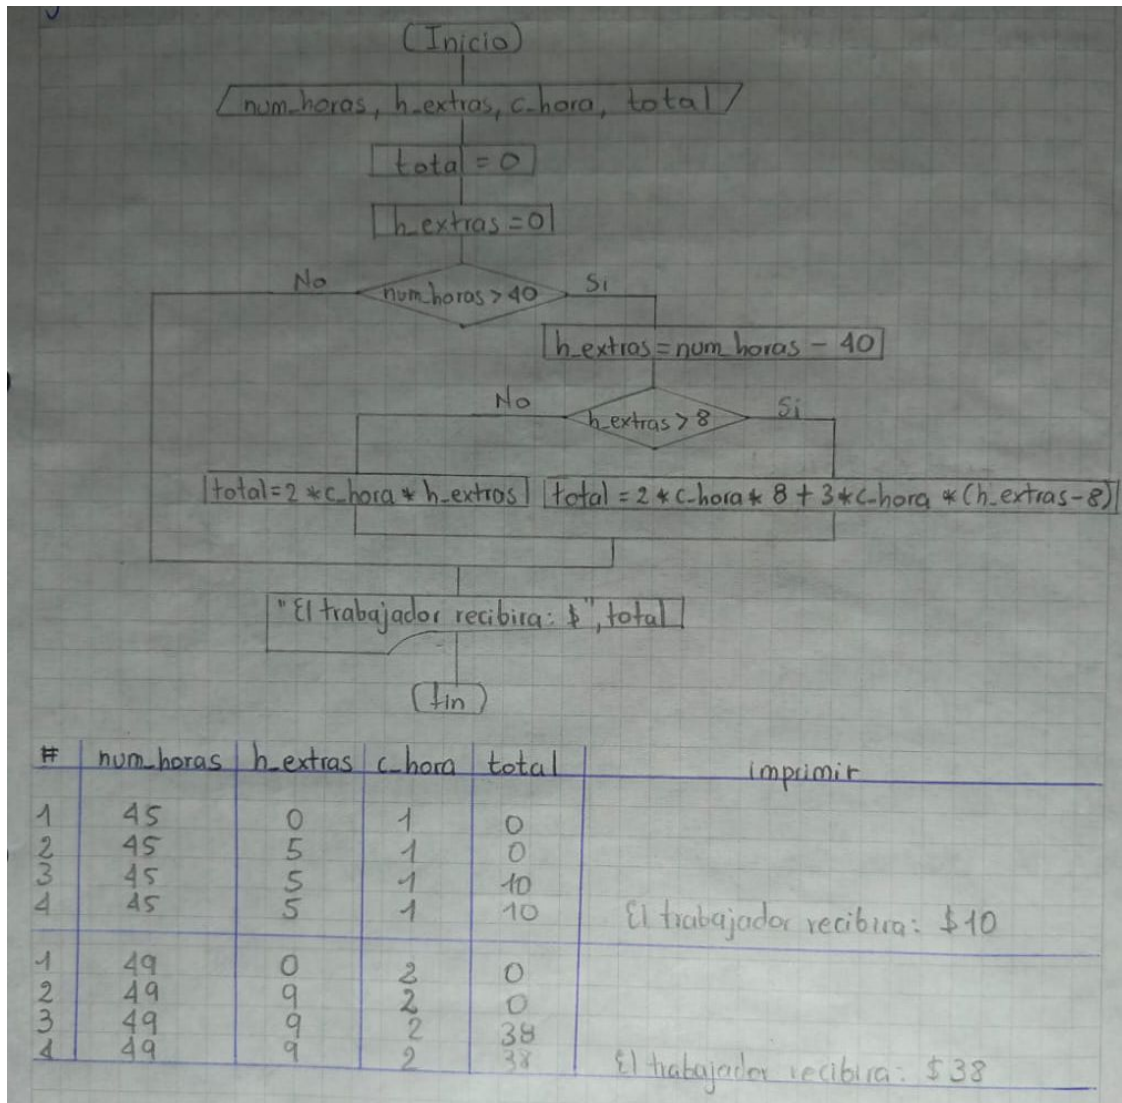 (Inicio)
num_horas, h_extras, c_hora, total
total = 0
h_extras = 0
No
num_horas > 40
Si
h_extras = num_horas - 40
No
h_extras > 8
Si
total = 2 * c_hora * h_extras
total = 2 * c_hora * 8 + 3 * c_hora * (h_extras - 8)
"El trabajador recibira: $", total
(fin)
# num_horas h_extras c_hora total imprimir
1 45 0 1 0
2 45 5 1 0
3 45 5 1 10
4 45 5 1 10 El trabajador recibira: $10
1 49 0 2 0
2 49 9 2 0
3 49 9 2 38
4 49 9 2 38 El trabajador recibira: $38